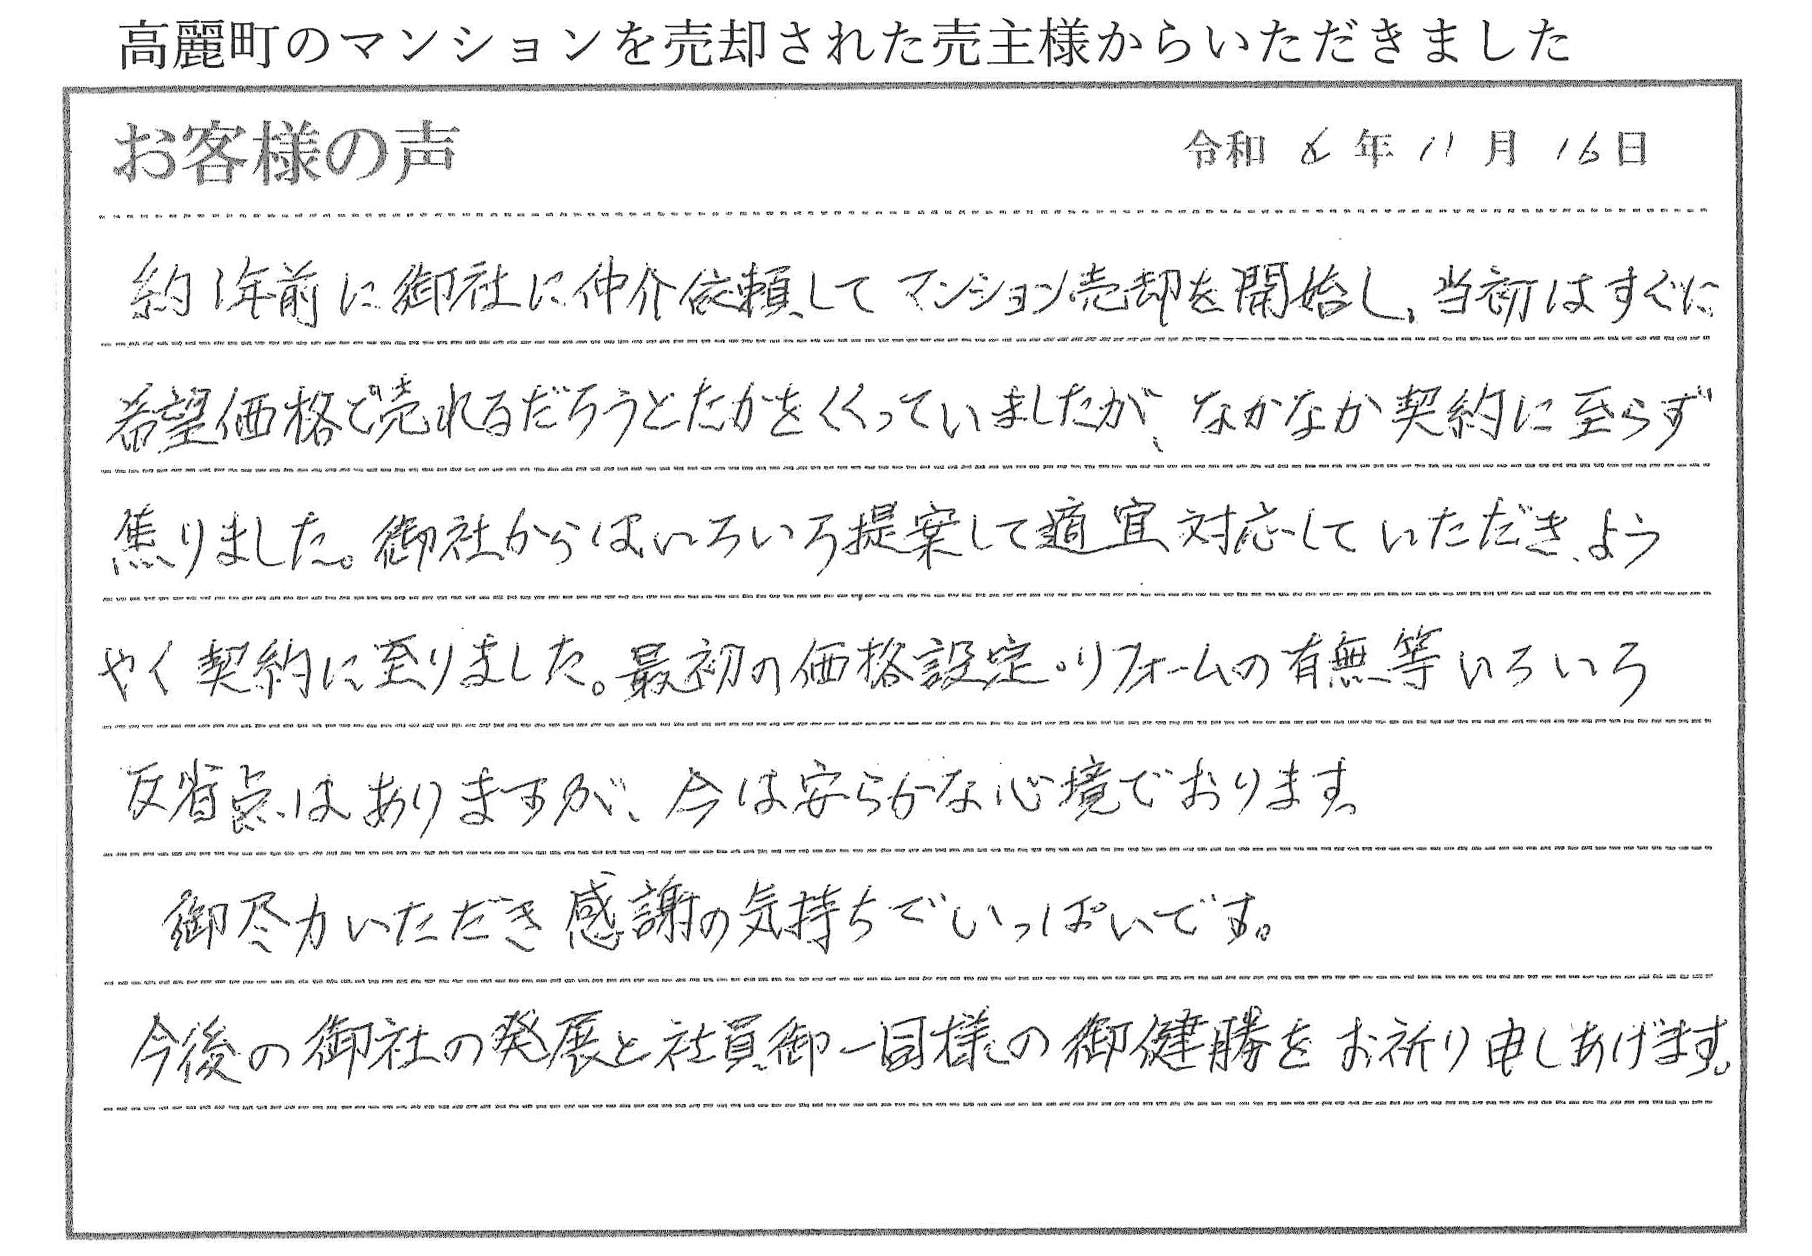 高麗町のマンションを売却された売主様からいただきました
お客様の声
令和 6 年 11 月 16 日
約1年前に御社に仲介依頼してマンション売却を開始し、当初はすぐに
希望価格で売れるだろうとたかをくくっていましたが、なかなか契約に至らず
焦りました。御社からは、いろいろ提案して適宜対応していただき、よう
やく契約に至りました。最初の価格設定・リフォームの有無等いろいろ
反省点はありますが、今は安らかな心境でおります。
御尽力いただき感謝の気持ちでいっぱいです。
今後の御社の発展と社員御一同様の御健勝をお祈り申しあげます。